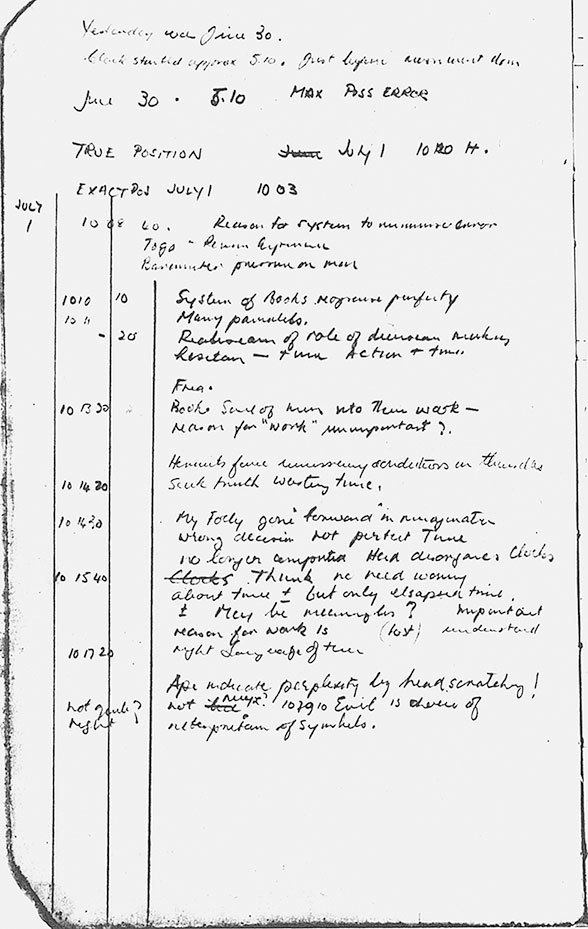 Yesterday was June 30.
Clock started approx 5.10. Just before movement down
June 30 . 5.10 MAX POSS ERROR
TRUE POSITION June July 1 10 20 H.
EXACT POS JULY 1 10 03
JULY
1 10 08 40. Reason for system to minimise error
Togo -
Barometer pressure on man
1010 10 System of Books explain perfectly
10 11 Many parallels.
- 20 Realisation of role of decision making
Hesitation — time Action + time
Free.
10 13 30 Books Soul of men into their work —
reason for "work" unimportant ?.
Hermits force unnecessary conditions on themselves
10 14 30 Seek truth wasting time.
10 14 30 My Folly gone "forward" in imagination
wrong decision not perfect Time
no longer computed Had disorganised Clocks
10 15 40 Clocks. Think no need worry
about time ± but only elapsed time
± May be meaningless ? Important
reason for work is (lost) understand
10 17 20 right Language of time
Ape indicate perplexity by head scratching !
not quite ? not
right Evil is choice of
interpretation of symbols.